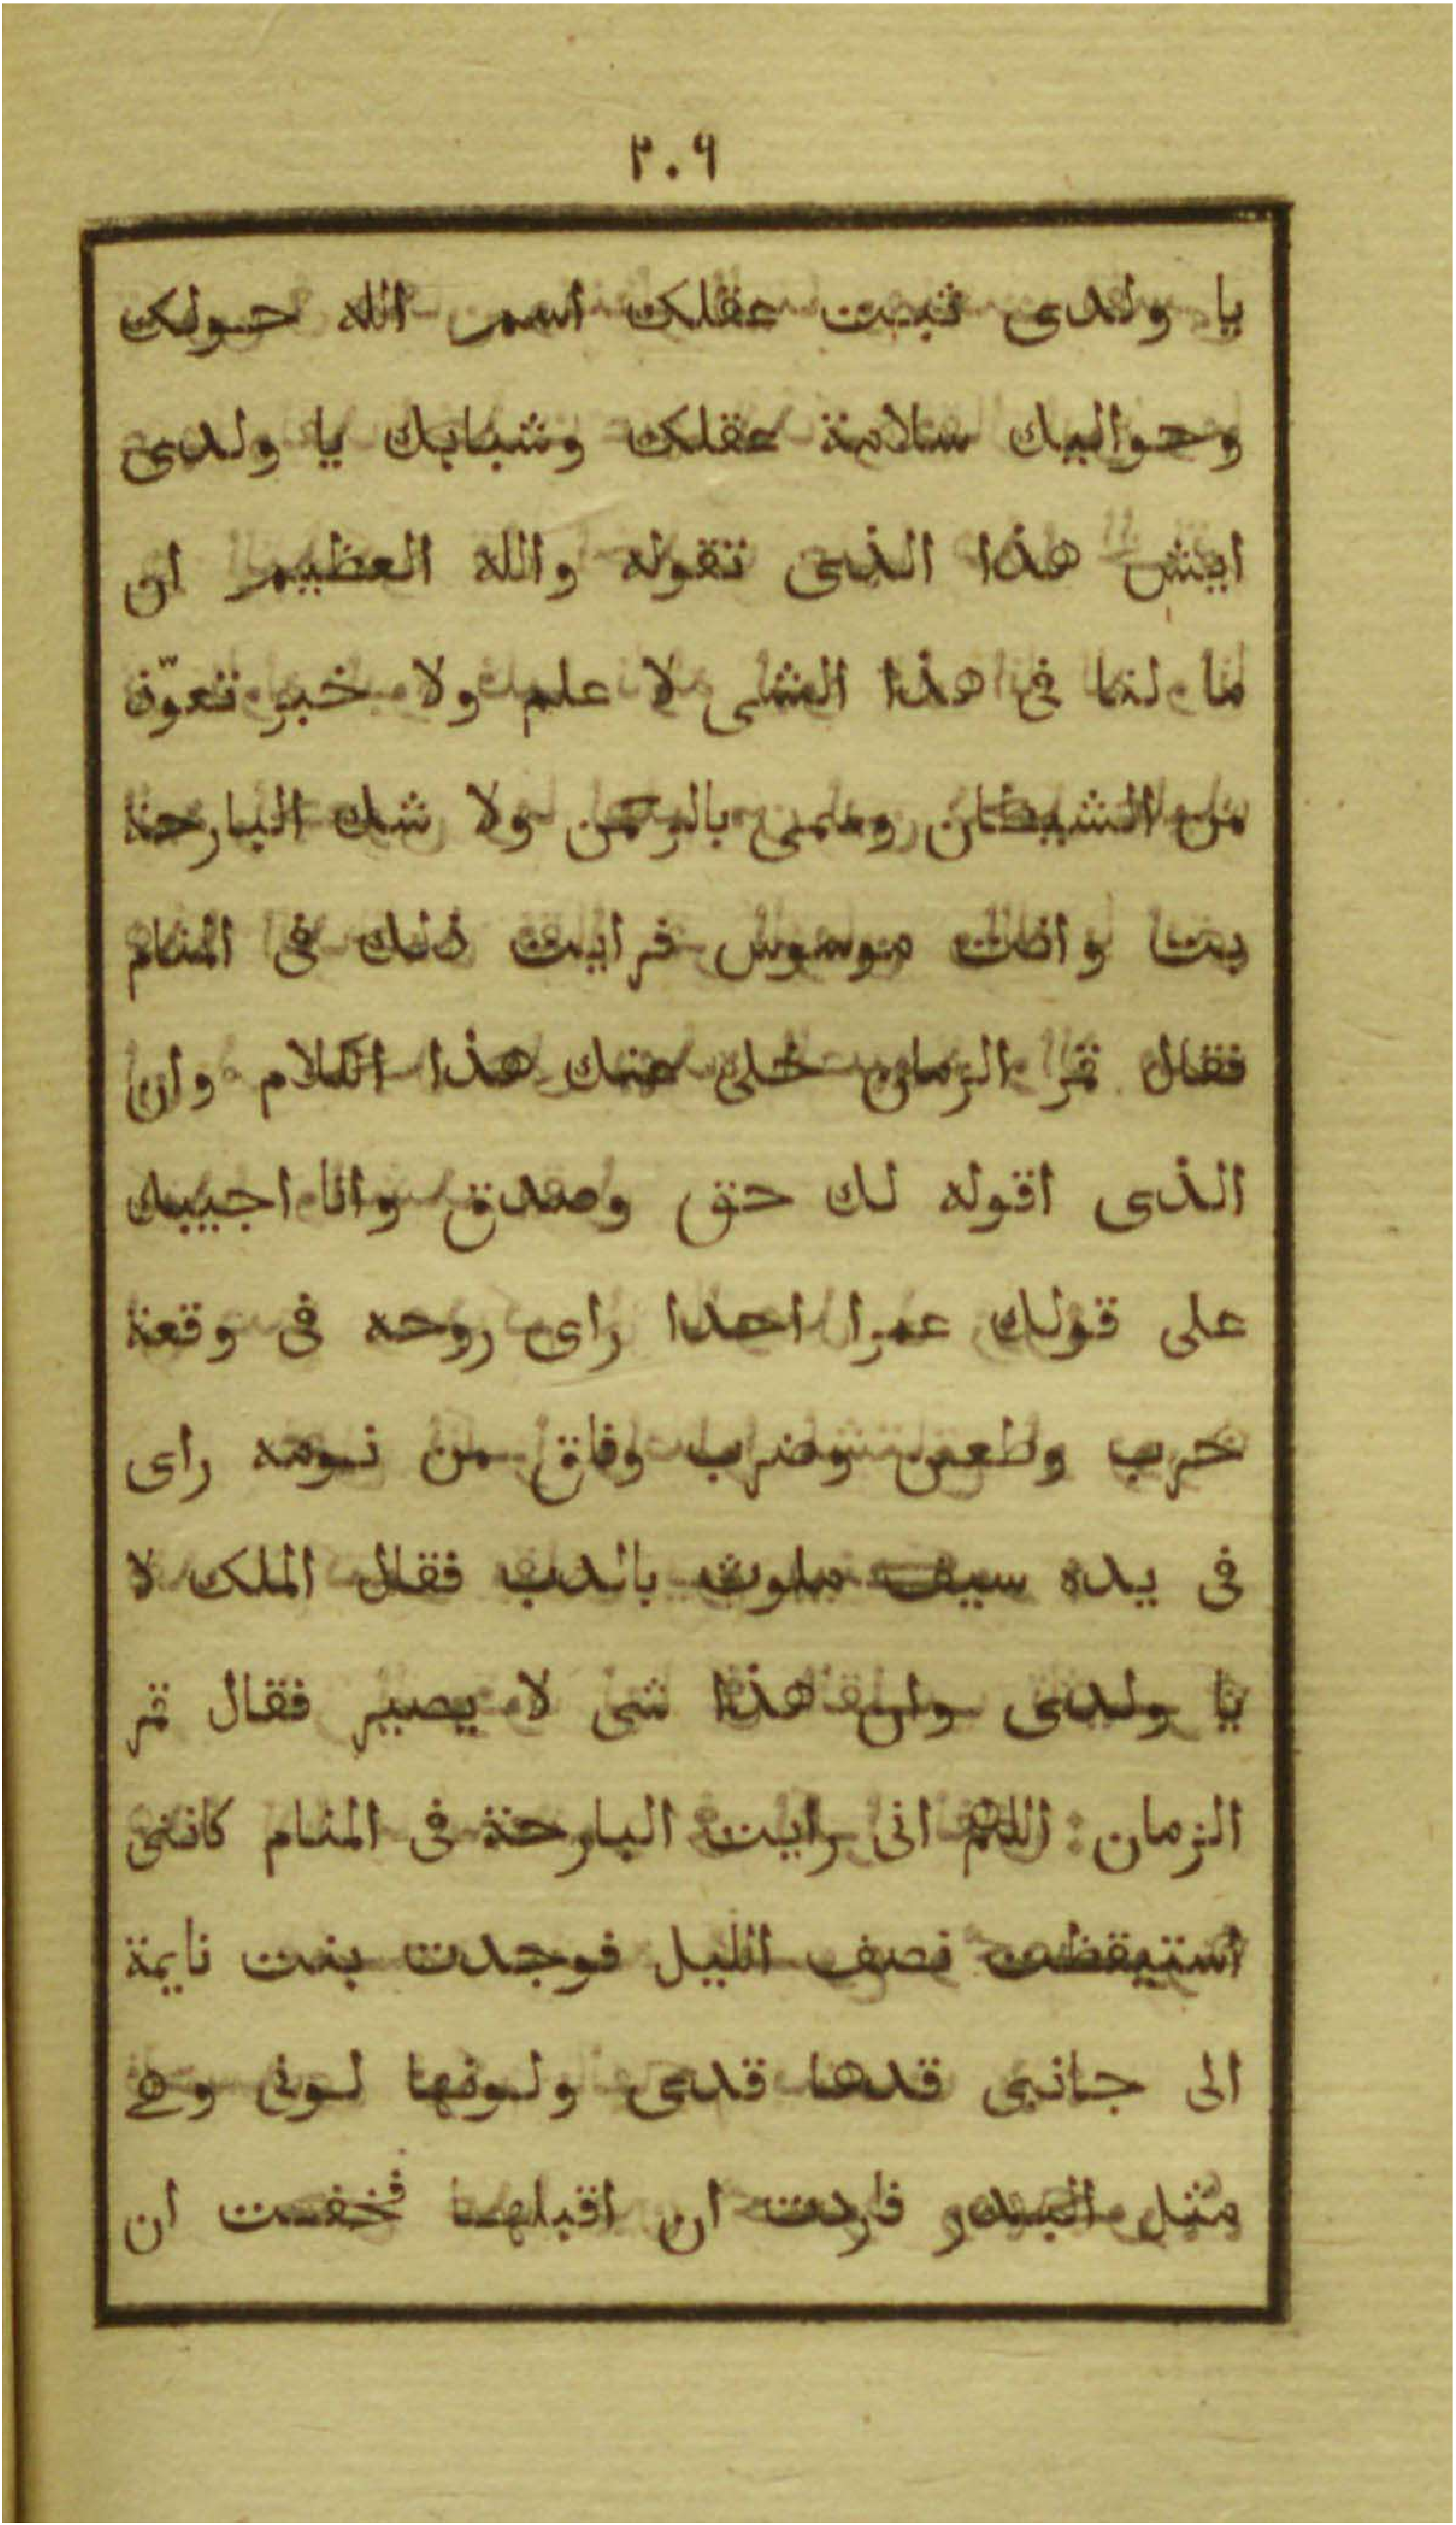 ٢٠٩
يا ولدى ثبت عقلك اسم الله حولك
وحواليك سلامة عقلك وشبابك يا ولدى
ايش هذا الذى تقوله والله العظيم ان
ما لنا فى هذا الشى لا علم ولا خبر تعوّذ
من الشيطان وسمى بالرحمن ولا شك البارحة
بت وانت موسوس فرايت ذلك فى المنام
فقال قمر الزمان خلى عنك هذا الكلام وان
الذى اقوله لك حق وصدق وانا اجيبك
على قولك عمرا احدا راى روحه فى وقعة
حرب وطعن وضرب وفاق من نومه راى
فى يده سيف ملوث بالدم فقال الملك لا
يا ولدى وان هذا شى لا يصير فقال قمر
الزمان : اللهم انى رايت البارحة فى المنام كاننى
استيقظت نصف الليل فوجدت بنت نايمة
الى جانبى قدها قدى ولونها لونى وهى
مثل البدر فاردت ان اقبلها فخفت ان